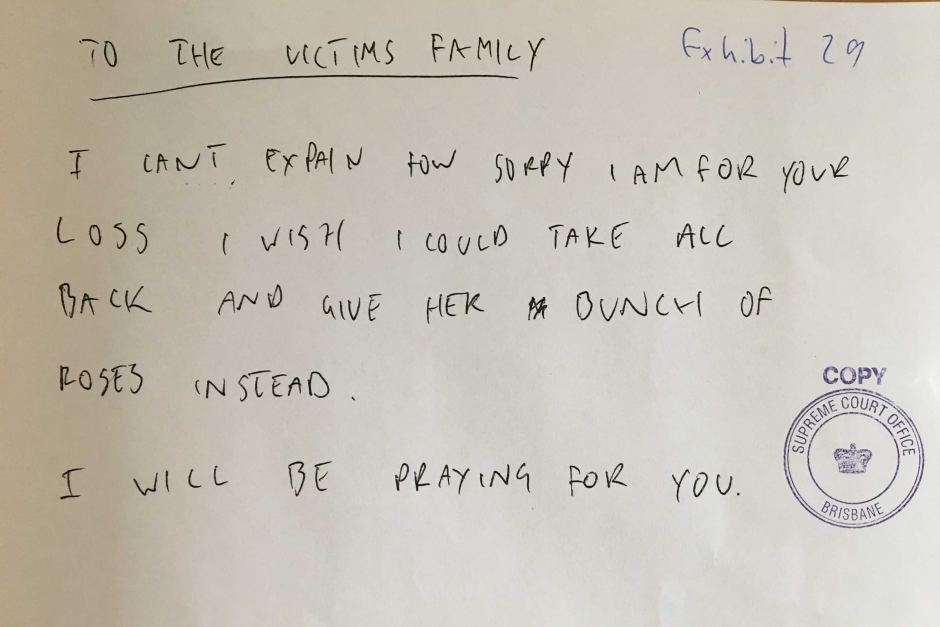 TO THE VICTIMS FAMILY Exhibit 29
I CANT EXPAIN HOW SORRY I AM FOR YOUR
LOSS I WISH I COULD TAKE ALL
BACK AND GIVE HER A BUNCH OF
ROSES INSTEAD.
I WILL BE PRAYING FOR YOU.
COPY
SUPREME COURT OFFICE
BRISBANE